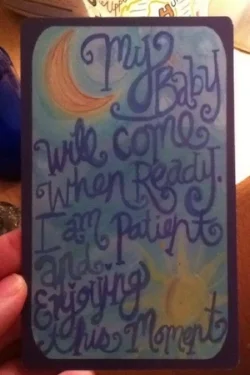 My
Baby
will come
When Ready.
I am Patient
and
Enjoying
this Moment